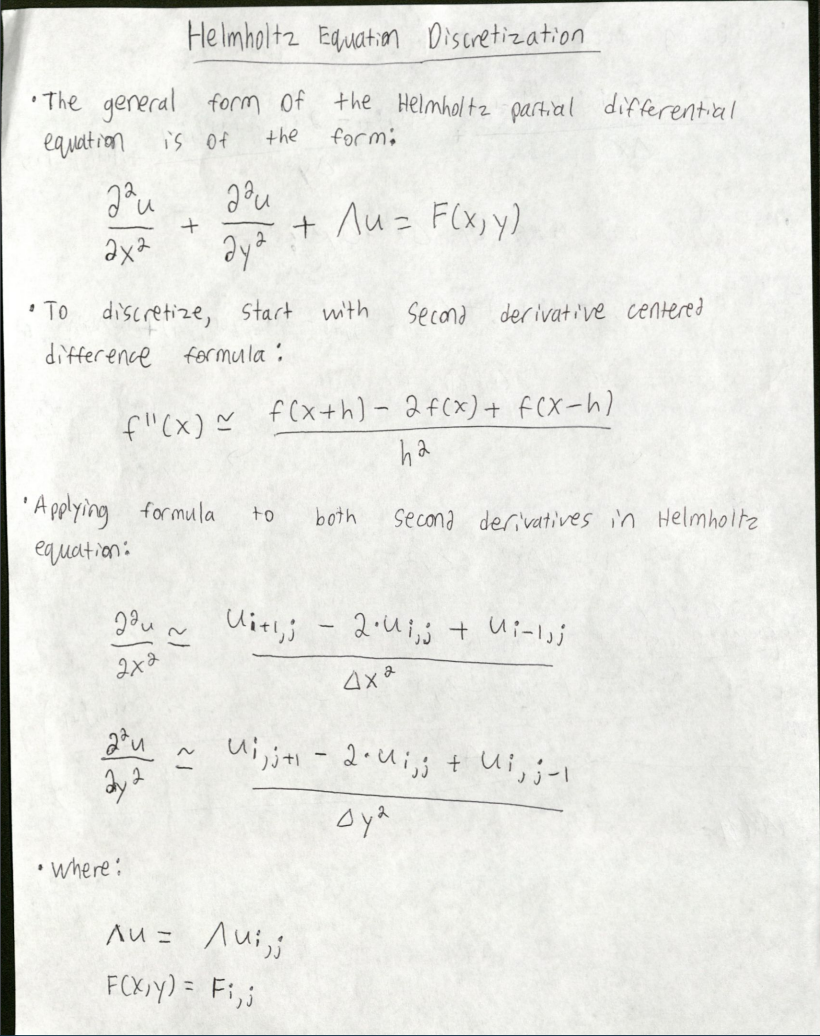 Helmholtz Equation Discretization
• The general form of the Helmholtz partial differential
equation is of the form:
∂²u/∂x² + ∂²u/∂y² + Λu = F(x,y)
• To discretize, start with second derivative centered
difference formula:
f''(x) ≃ (f(x+h) - 2f(x) + f(x-h))/h²
• Applying formula to both second derivatives in Helmholtz
equation:
∂²u/∂x² ≃ (u_{i+1,j} - 2·u_{i,j} + u_{i-1,j})/Δx²
∂²u/∂y² ≃ (u_{i,j+1} - 2·u_{i,j} + u_{i,j-1})/Δy²
• Where:
Λu = Λu_{i,j}
F(x,y) = F_{i,j}